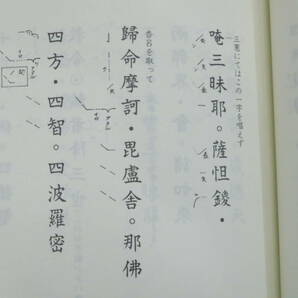 三憲にてはこの一字を唱えず
唵三昧耶。薩怛鑁・
香呂を取って
歸命摩訶・毘盧舍。那佛
四方・四智。四波羅密